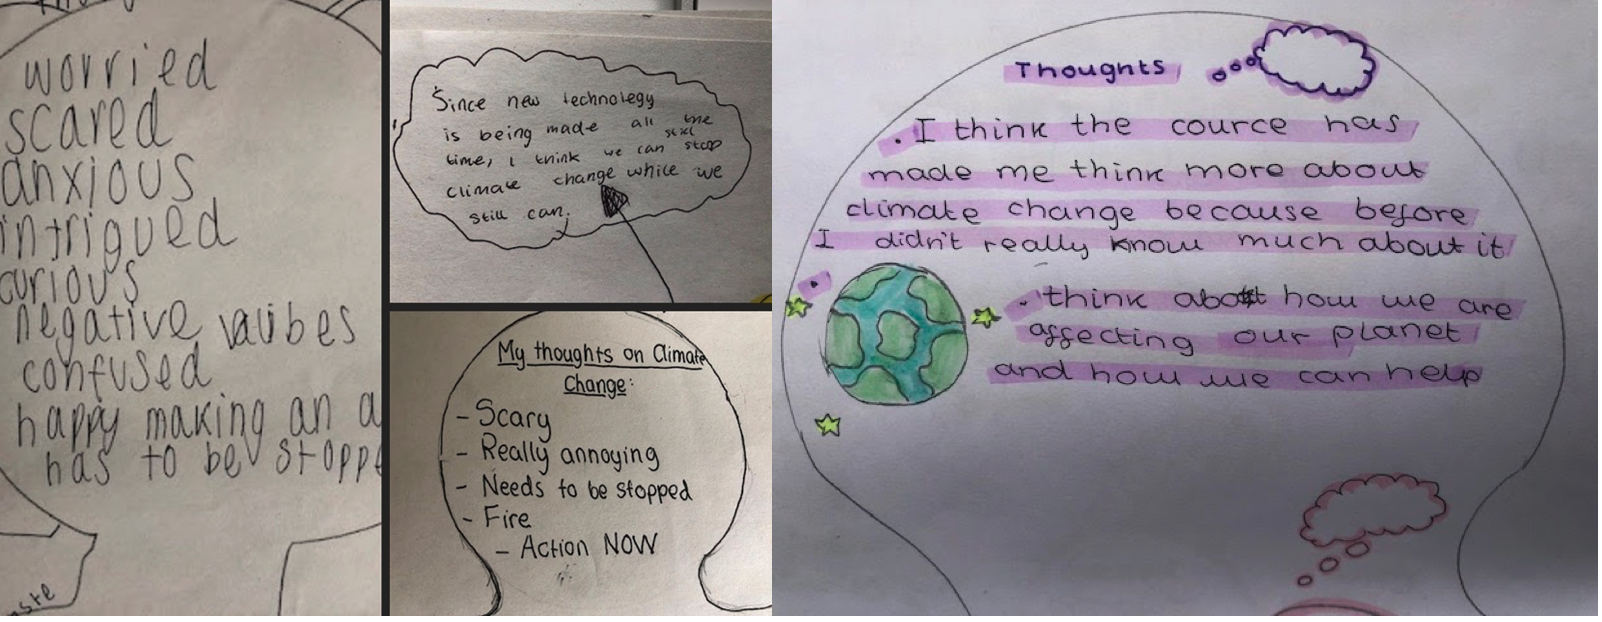 worried
scared
anxious
intrigued
curious
negative vauibes
confused
happy making an a
has to be stoppe
aste
Since new technology
is being made all the
still
time, I think we can stop
climate change while we
still can.
My thoughts on Climate
Change:
- Scary
- Really annoying
- Needs to be stopped
- Fire
- Action NOW
Thoughts
. I think the cource has
made me think more about
climate change because before
I didn't really know much about it
. think about how we are
affecting our planet
and how we can help